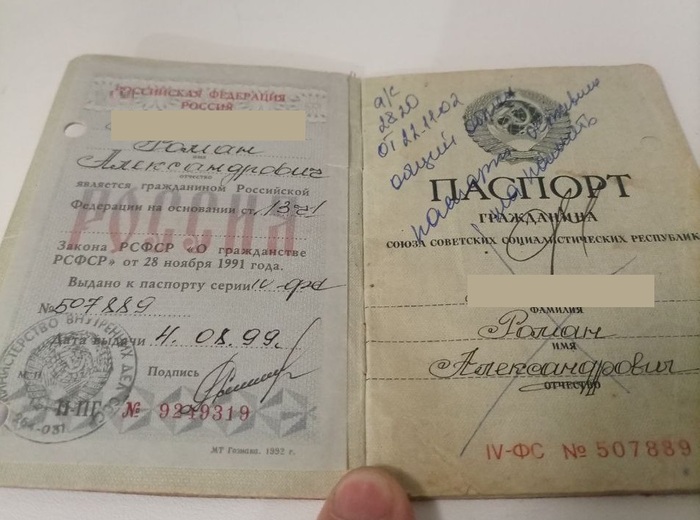 РОССИЙСКАЯ ФЕДЕРАЦИЯ
РОССИЯ
Роман
имя
Александрович
отчество
является гражданином Российской
Федерации на основании ст. 13 ч1
РОССИЯ
Закона РСФСР «О гражданстве
РСФСР» от 28 ноября 1991 года.
Выдано к паспорту серии IV-фс
№ 507889
Дата выдачи 4. 08. 99.
Подпись
М П
МИНИСТЕРСТВО ВНУТРЕННИХ ДЕЛ
264-031
II-ПГ № 9249319
МТ Гознака. 1992 г.
а/с
2820
от 22.11.02
паспорт
ПАСПОРТ
ГРАЖДАНИНА
СОЮЗА СОВЕТСКИХ СОЦИАЛИСТИЧЕСКИХ РЕСПУБЛИК
ФАМИЛИЯ
Роман
ИМЯ
Александрович
ОТЧЕСТВО
IV-ФС № 507889